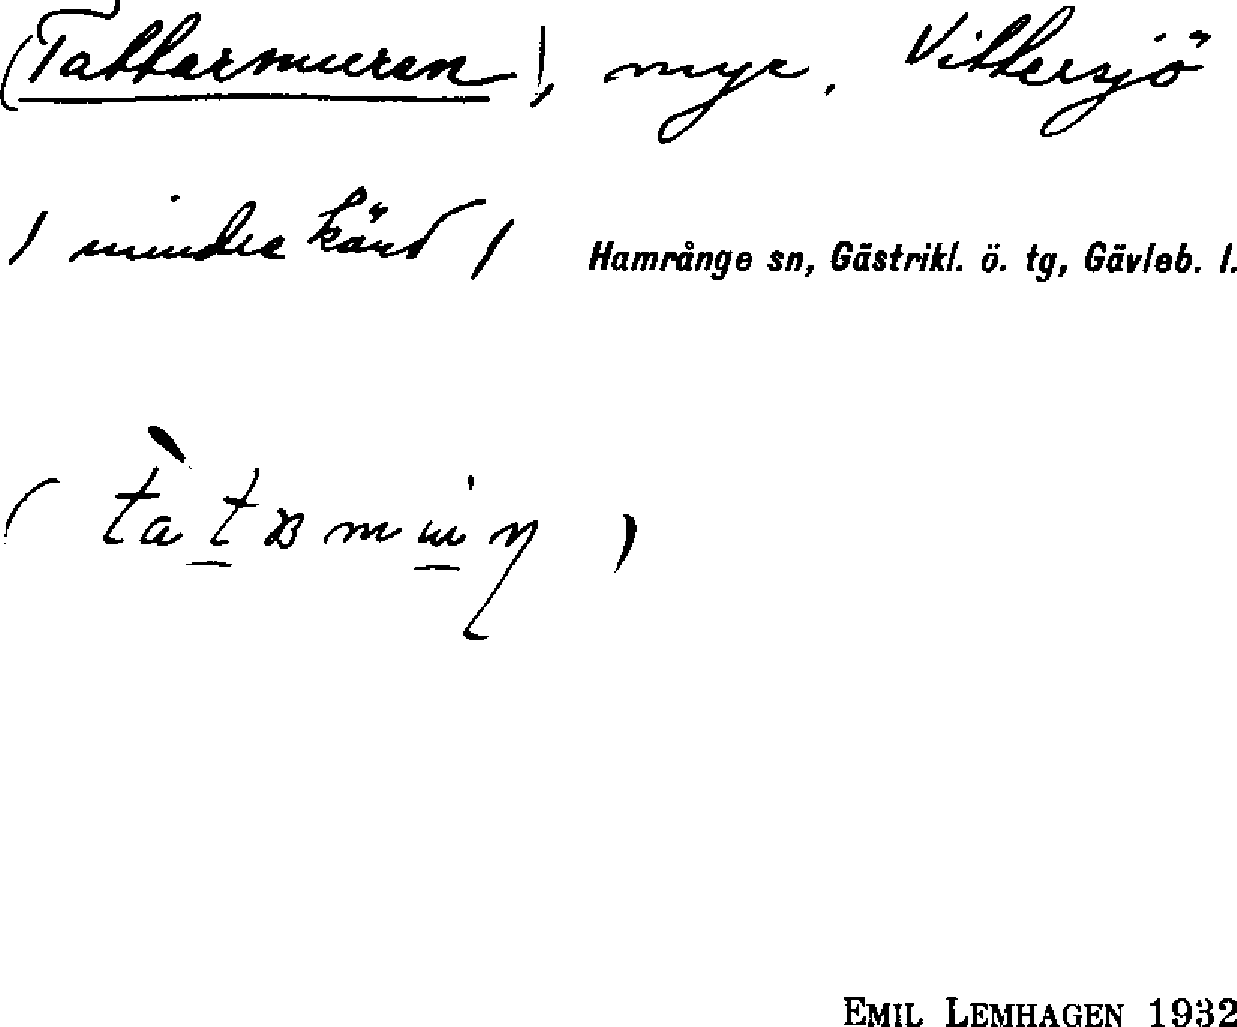 (Tattarmuren), myr. Vittersjö
/ mindre känd / Hamrånge sn, Gästrikl. ö. tg, Gävleb. l.
EMIL LEMHAGEN 1932